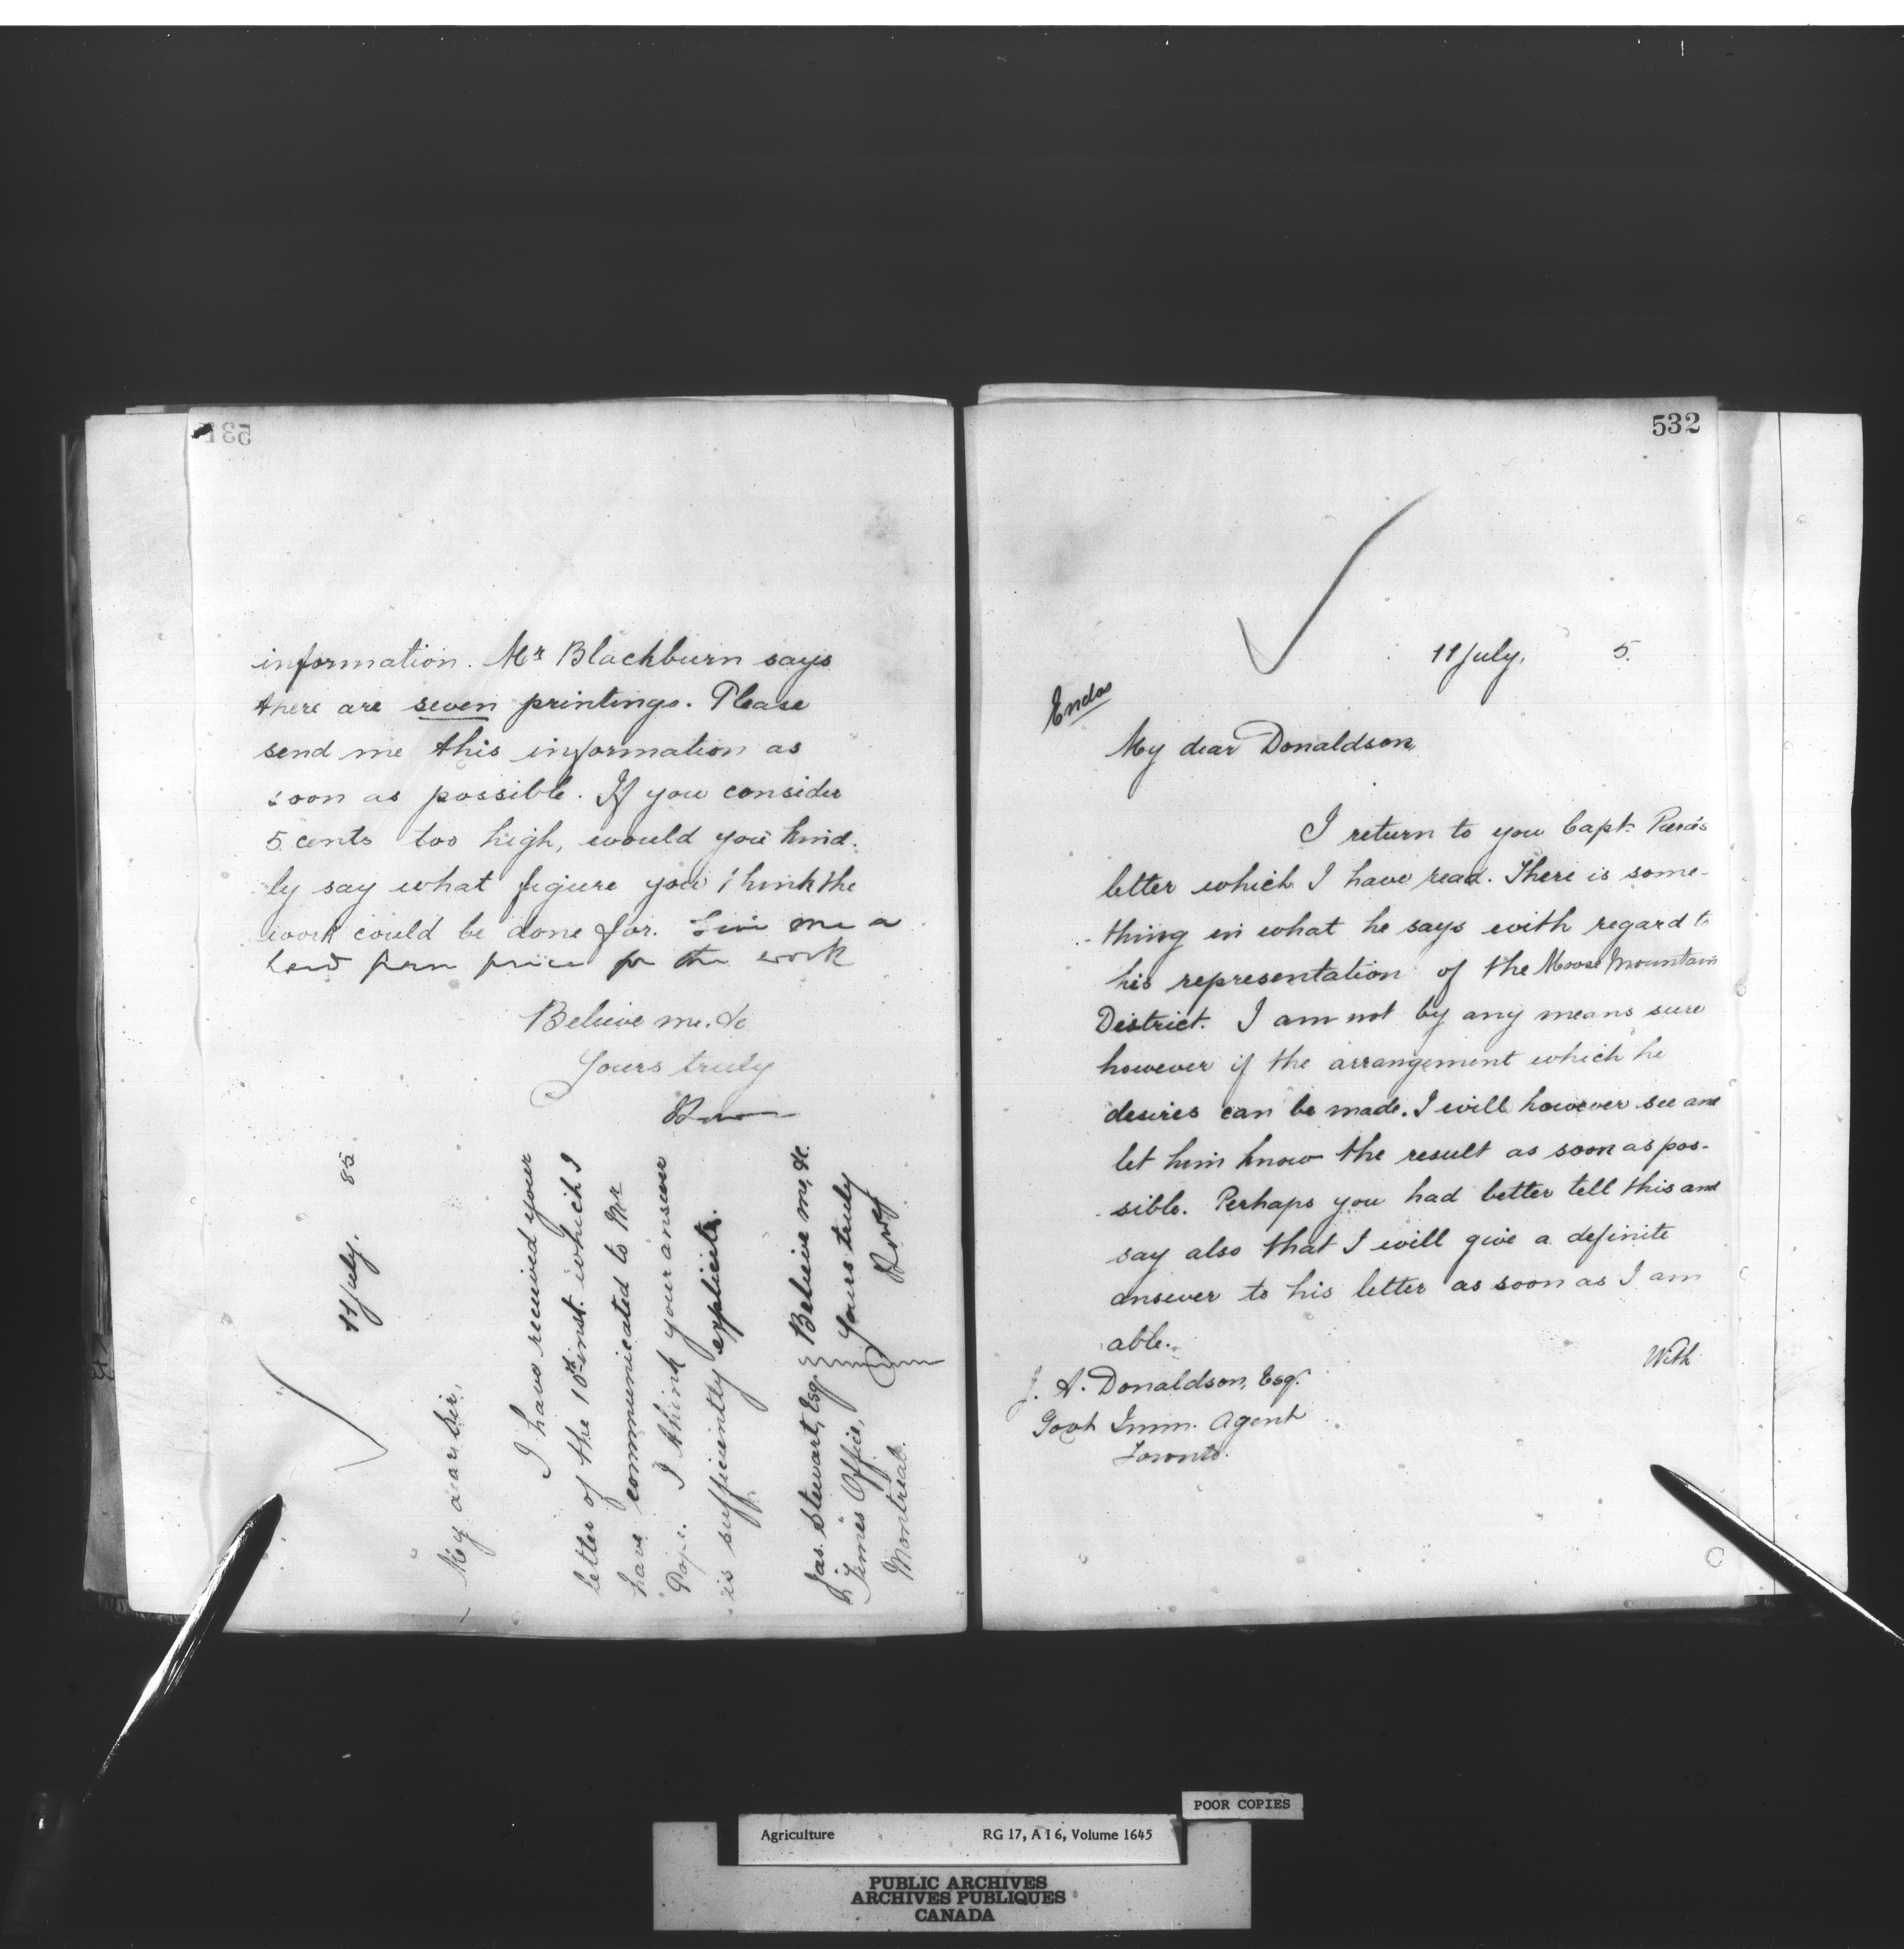 531
information. Mr Blackburn says
there are seven printings. Please
send me this information as
soon as possible. If you consider
5 cents too high, would you kind-
ly say what figure you think the
work could be done for. Give me a
hard firm price for the work
Believe me, &c
Yours truly
11 July, 85
My dear Sir,
I have received your
letter of the 10th inst. which I
have communicated to Mr
Pope. I think your answer
is sufficiently explicit.
Believe me, &c.
Yours truly
Jas. Stewart, Esq.
Times Office,
Montreal.
532
11 July, 5.
Enclos
My dear Donaldson,
I return to you Capt.
letter which I have read. There is some-
thing in what he says with regard to
his representation of the Moose Mountain
District. I am not by any means sure
however if the arrangement which he
desires can be made. I will however see and
let him know the result as soon as pos-
sible. Perhaps you had better tell this and
say also that I will give a definite
answer to his letter as soon as I am
able.
With
J. A. Donaldson, Esq.
Govt Imm. Agent
Toronto.
POOR COPIES
Agriculture RG 17, A I 6, Volume 1645
PUBLIC ARCHIVES
ARCHIVES PUBLIQUES
CANADA